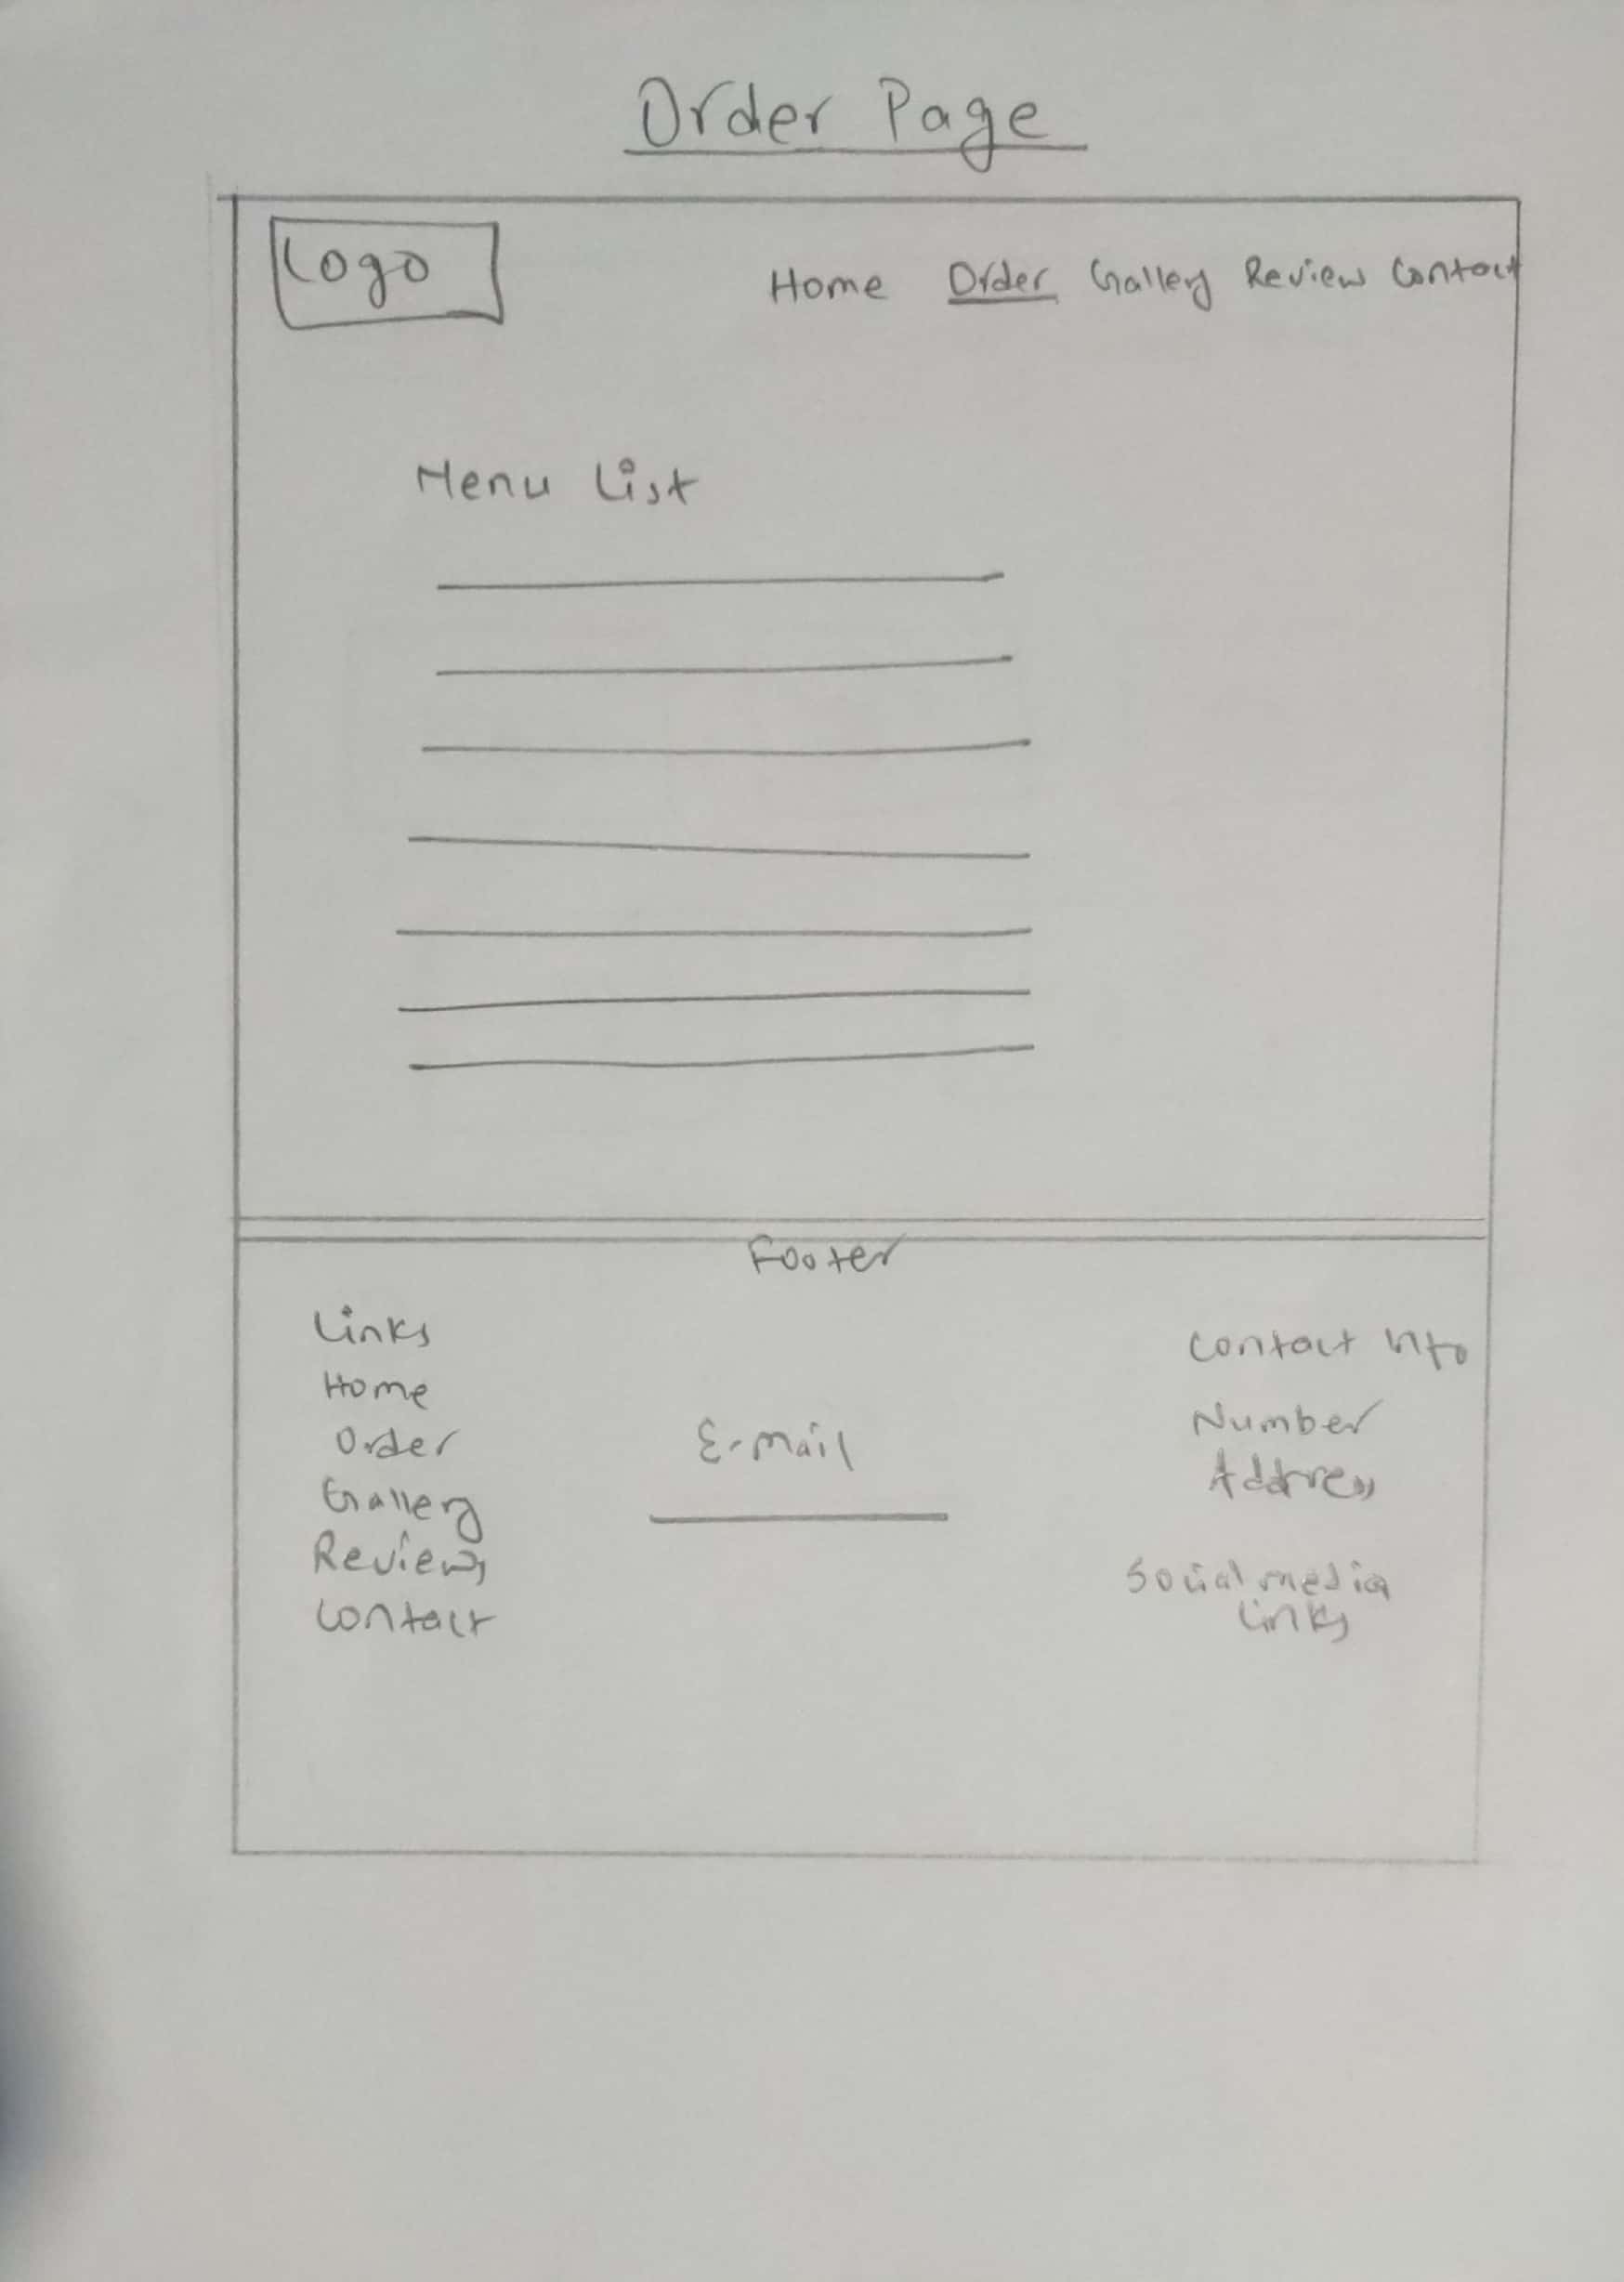 Order Page
Logo
Home Order Gallery Review Contact
Menu List
Footer
Links
Home
Order
Gallery
Reviews
Contact
E-mail
Contact Info
Number
Address
Social media
Links